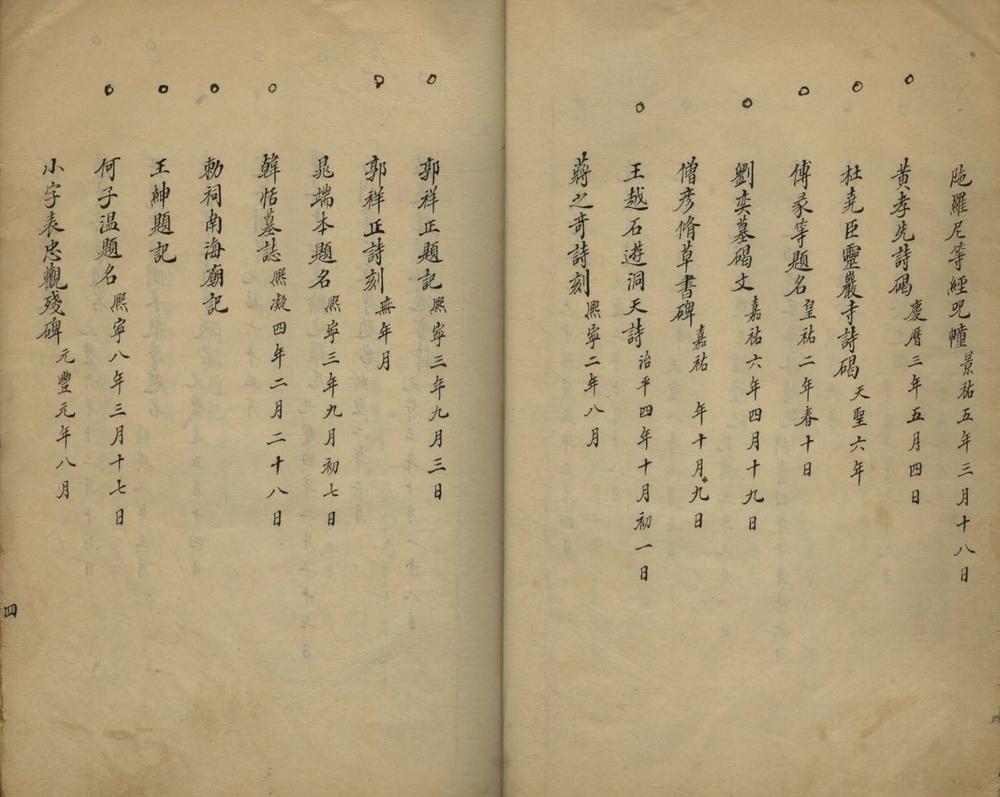 陁羅尼等經咒幢 景祐五年三月十八日
黃孝先詩碣 慶曆三年五月四日
杜堯臣靈巖寺詩碣 天聖六年
傅彖等題名 皇祐二年春十日
劉奕墓碣文 嘉祐六年四月十九日
僧彥脩草書碑 嘉祐 年十月九日
王越石遊洞天詩 治平四年十月初一日
蔣之奇詩刻 熈寧二年八月
郭祥正題記 熈寧三年九月三日
郭祥正詩刻 無年月
晁端本題名 熈寧三年九月初七日
韓恬墓誌 熈凝四年二月二十八日
勑祠南海廟記
王紳題記
何子温題名 熈寧八年三月十七日
小字表忠觀殘碑 元豐元年八月
四